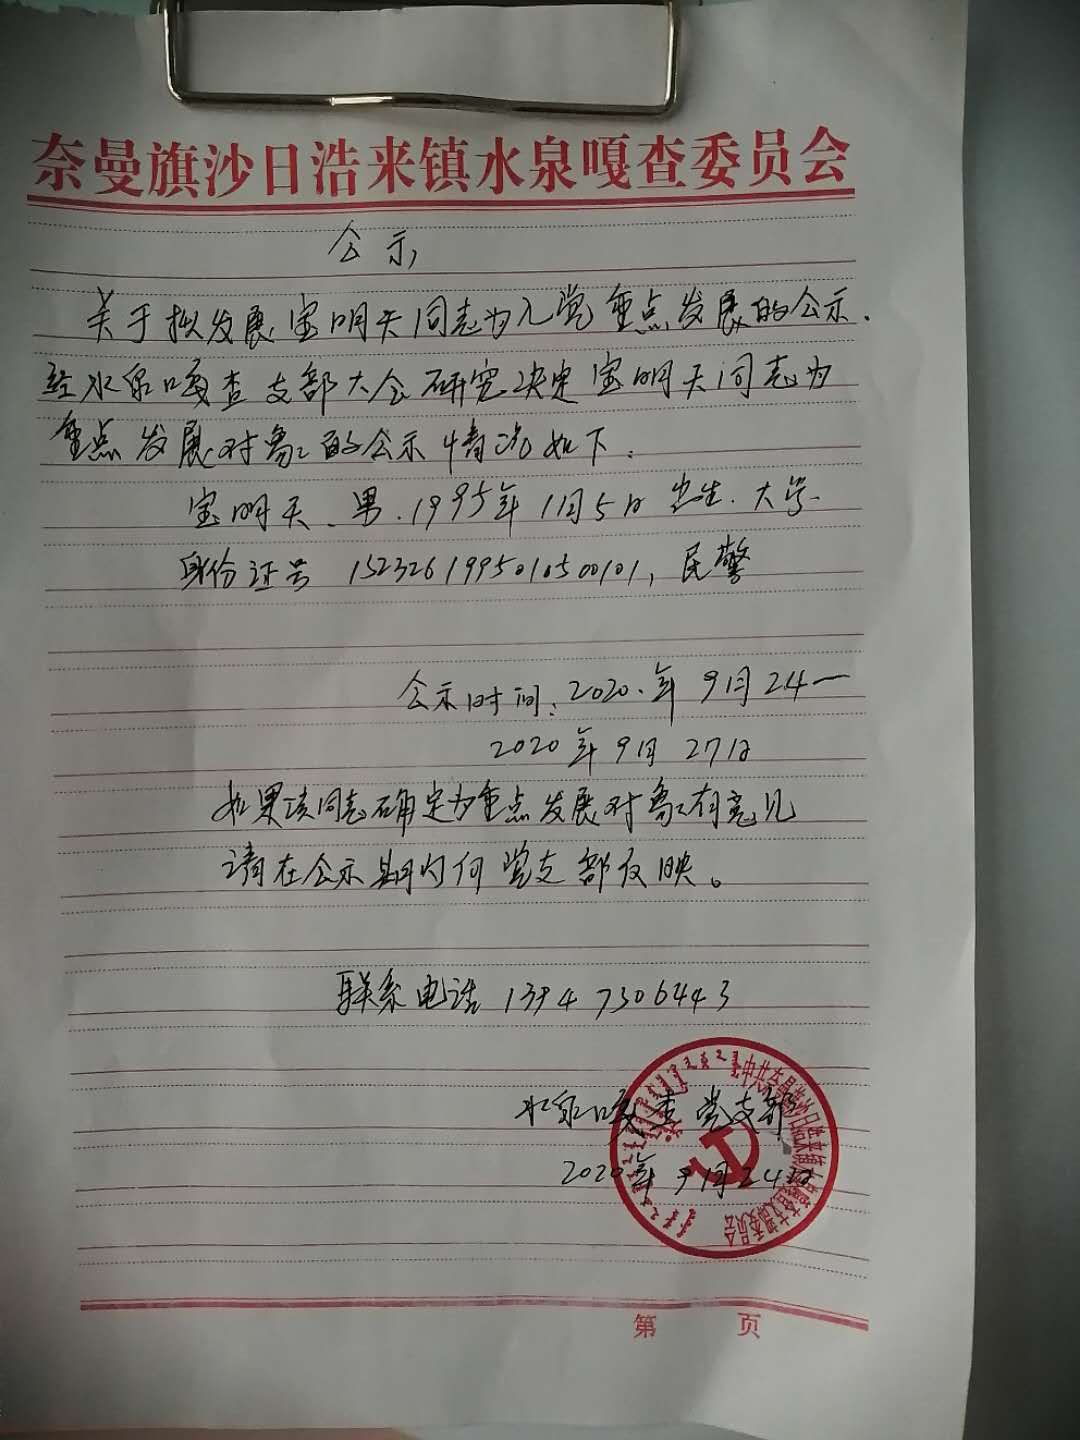 奈曼旗沙日浩来镇水泉嘎查委员会
公示
关于拟发展宝明天同志为入党重点发展的公示.
经水泉嘎查支部大会研究决定宝明天同志为
重点发展对象的公示情况如下:
宝明天、男.1995年1月5日出生.大学.
身份证号 1523261995010500101,民警
公示时间:2020.年9月24一
2020年9月27日
如果该同志确定为重点发展对象有意见
请在公示期内向党支部反映。
联系电话 13947306443
水泉嘎查党支部
2020年9月24日
第 页